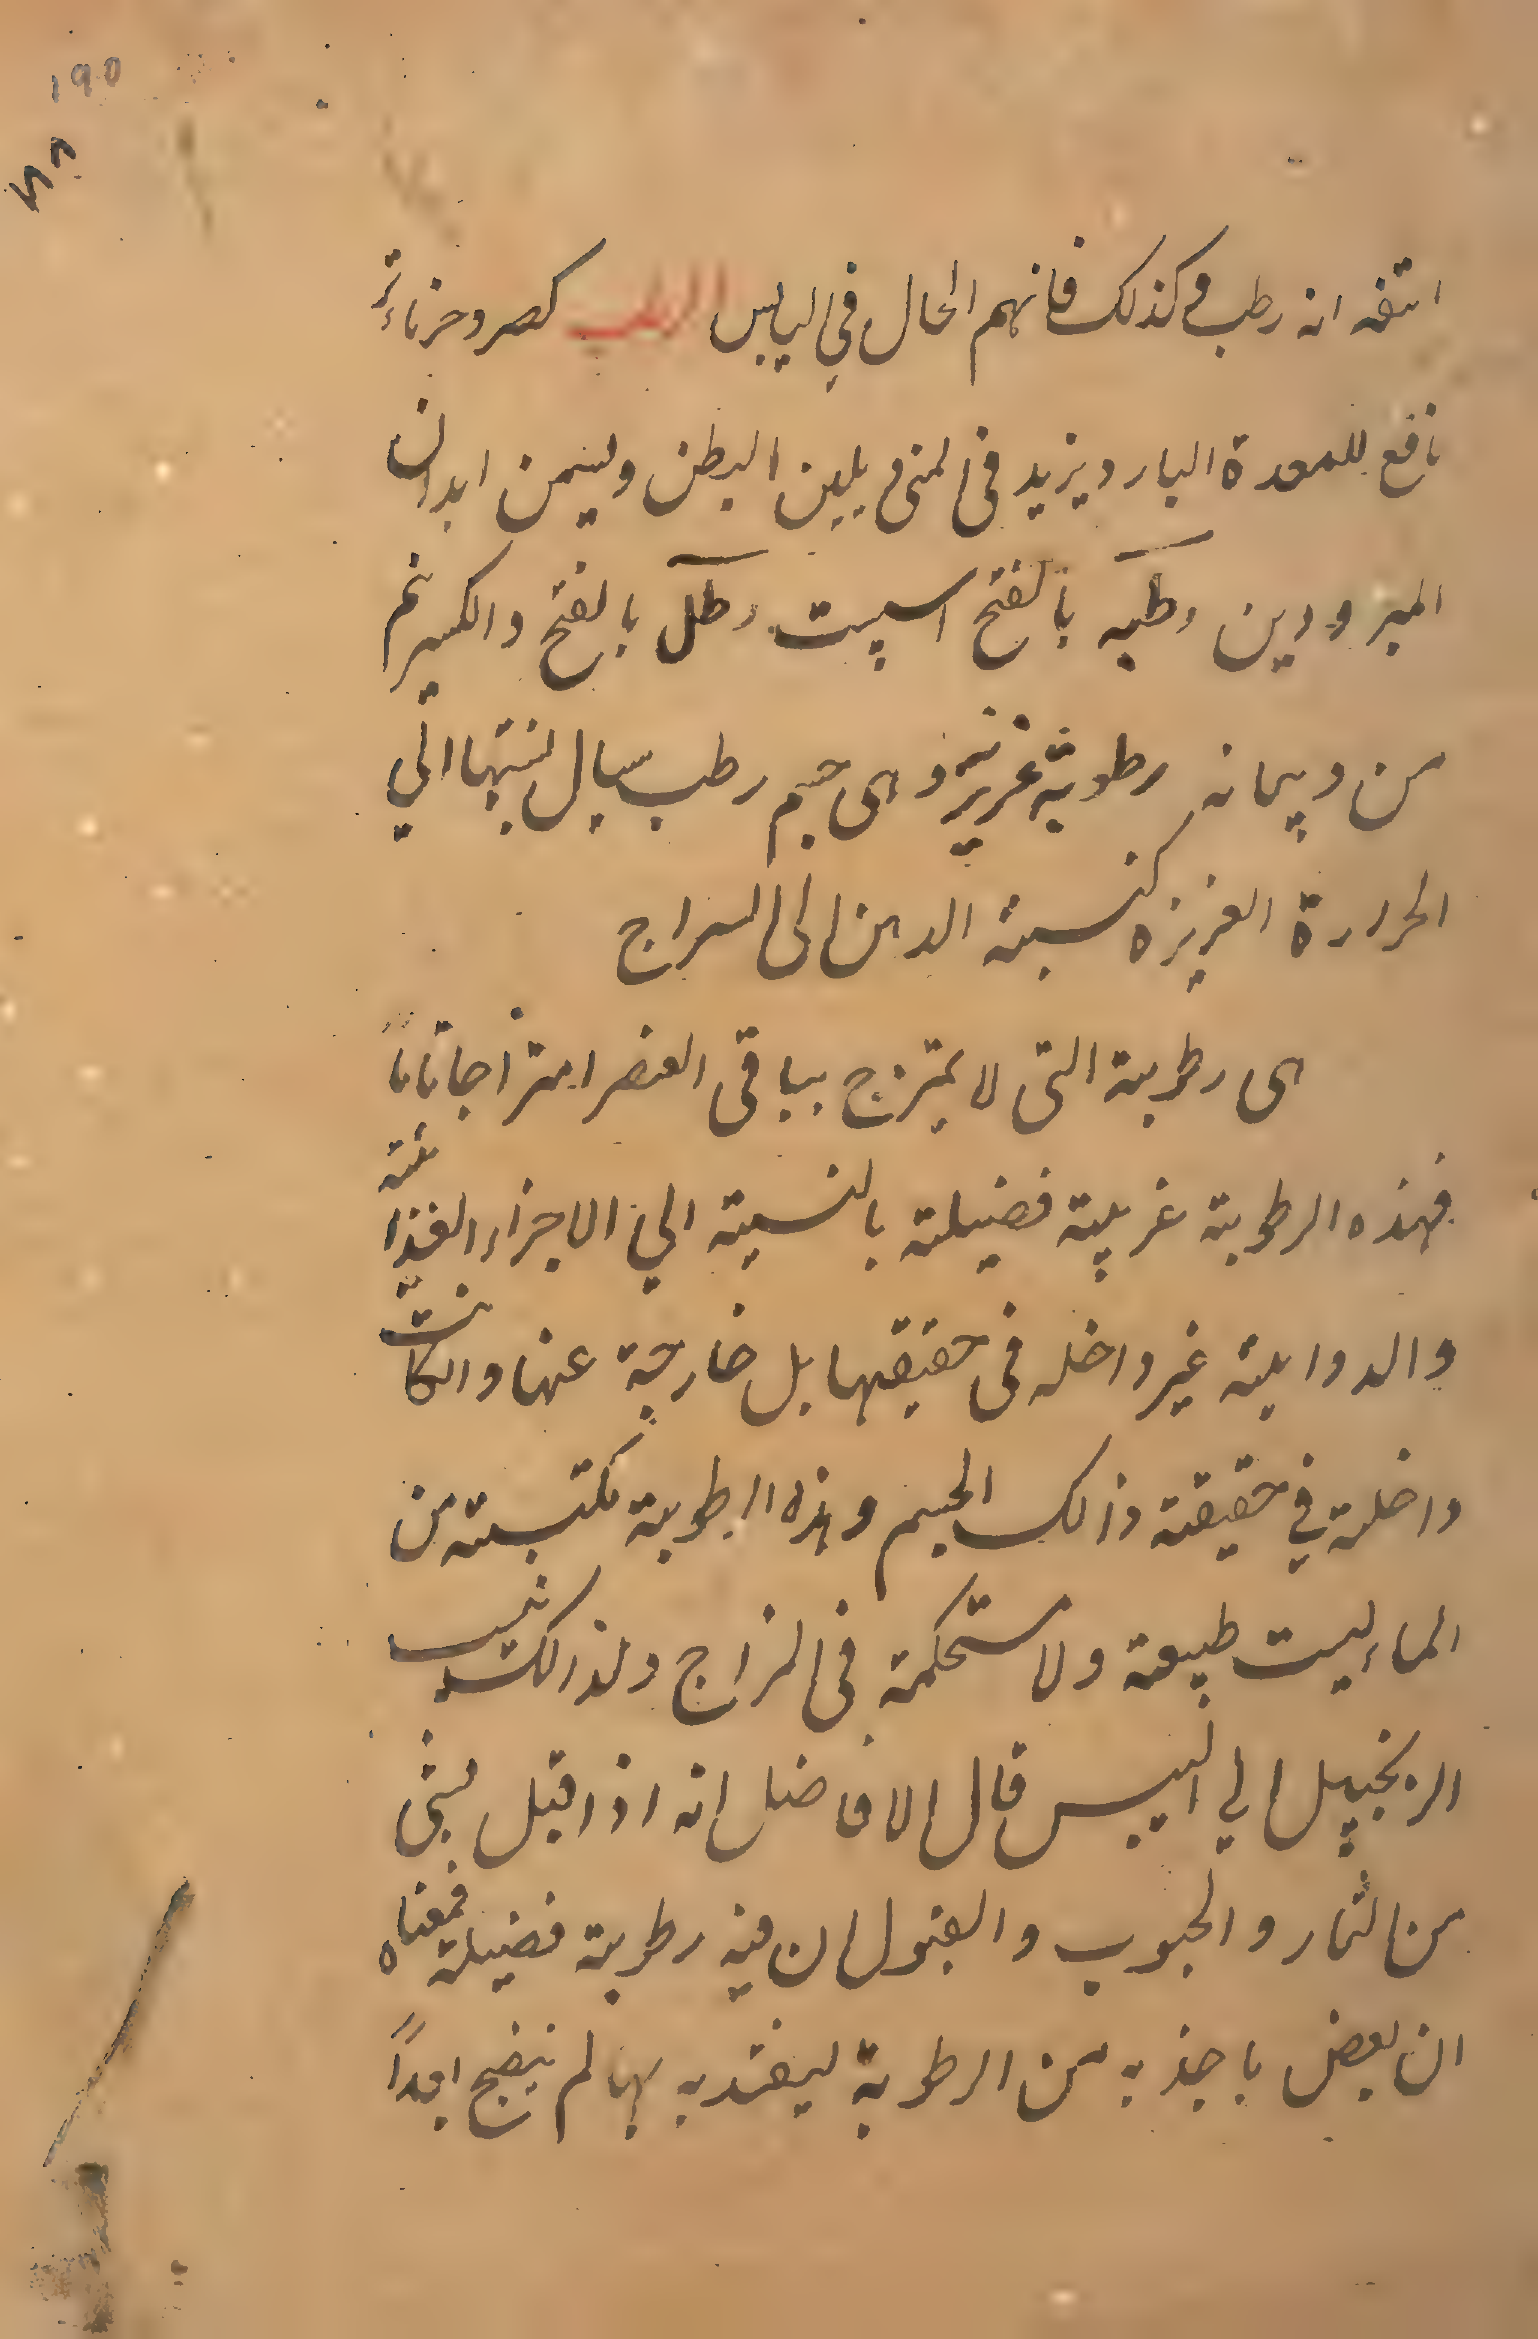 190
اتفه انه رطب وكذلك فانهم الحال في اليابس الرطب كصرد خرماءتر
نافع للمعدة البارد ويزيد في المنى و يلين البطن ويسمن ابدان
المبرودين رطبه بالفتح اسپست رطل بالفتح والكسر نيم
من و پيمانه رطوبة غريزية وهى جسم رطب سيال نسبتها الي
الحرارة الغريزه كنسبة الدهن الى السراج
هى رطوبة التى لا يمتزج بباقى العنصر امتزاجا تاما
فهذه الرطوبة غريبة فضيلة بالنسبة الي الاجزاء الغذائية
والدوايئة غير داخله فى حقيقتها بل خارجة عنها و الكانت
داخلة في حقيقة ذالك الجسم و هذه الرطوبة مكتسبة من
الماء ليست طبيعة ولا مستحكمة فى المزاج ولذالك نسب
الزنجبيل الي اليبس قال الافاضل انه اذا قيل لشئ
من الثمار و الحبوب و البقول ان فيه رطوبة فضيلة فمعناه
ان بعض ما جذبه من الرطوبة ليغتد به بها لم ينضج ابداً